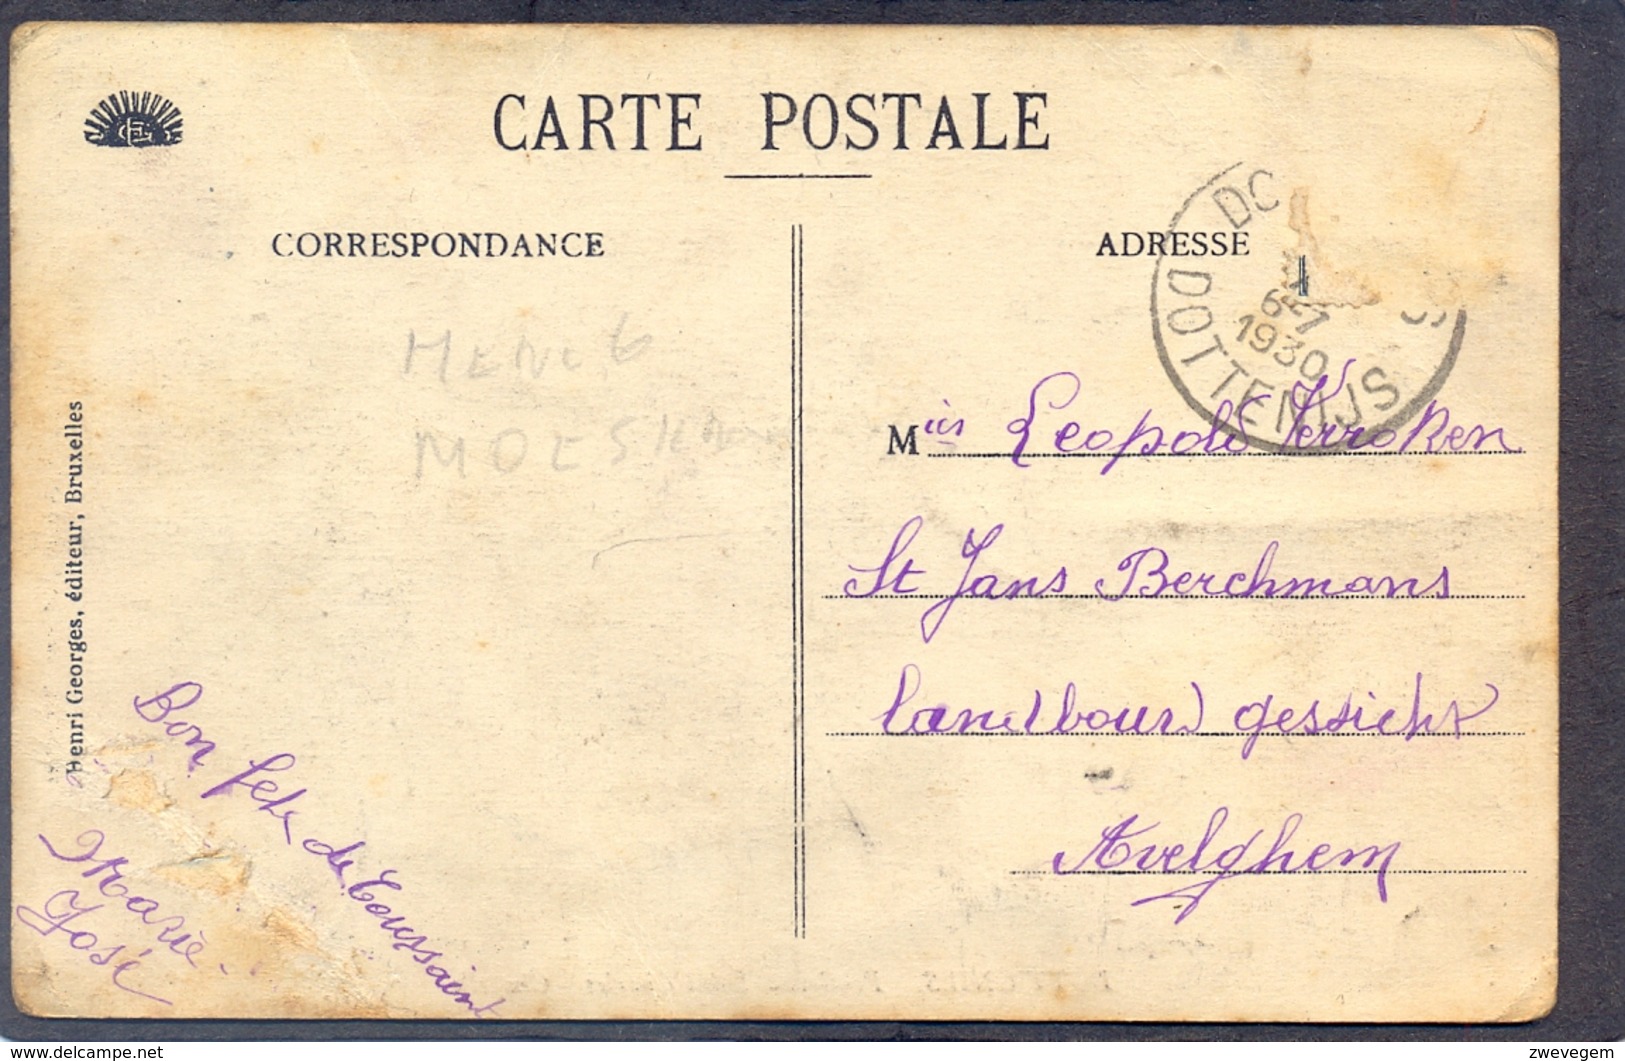 CARTE POSTALE
CORRESPONDANCE
ADRESSE
DOTTEMIJS
6-7
1930
Henri Georges, éditeur, Bruxelles
MOESKR
M Leopold Verroken
St Jans Berchmans
landbouw gessicht
Avelghem
Bon fete de Toussaint
Marie
José
www.delcampe.net
zwevegem